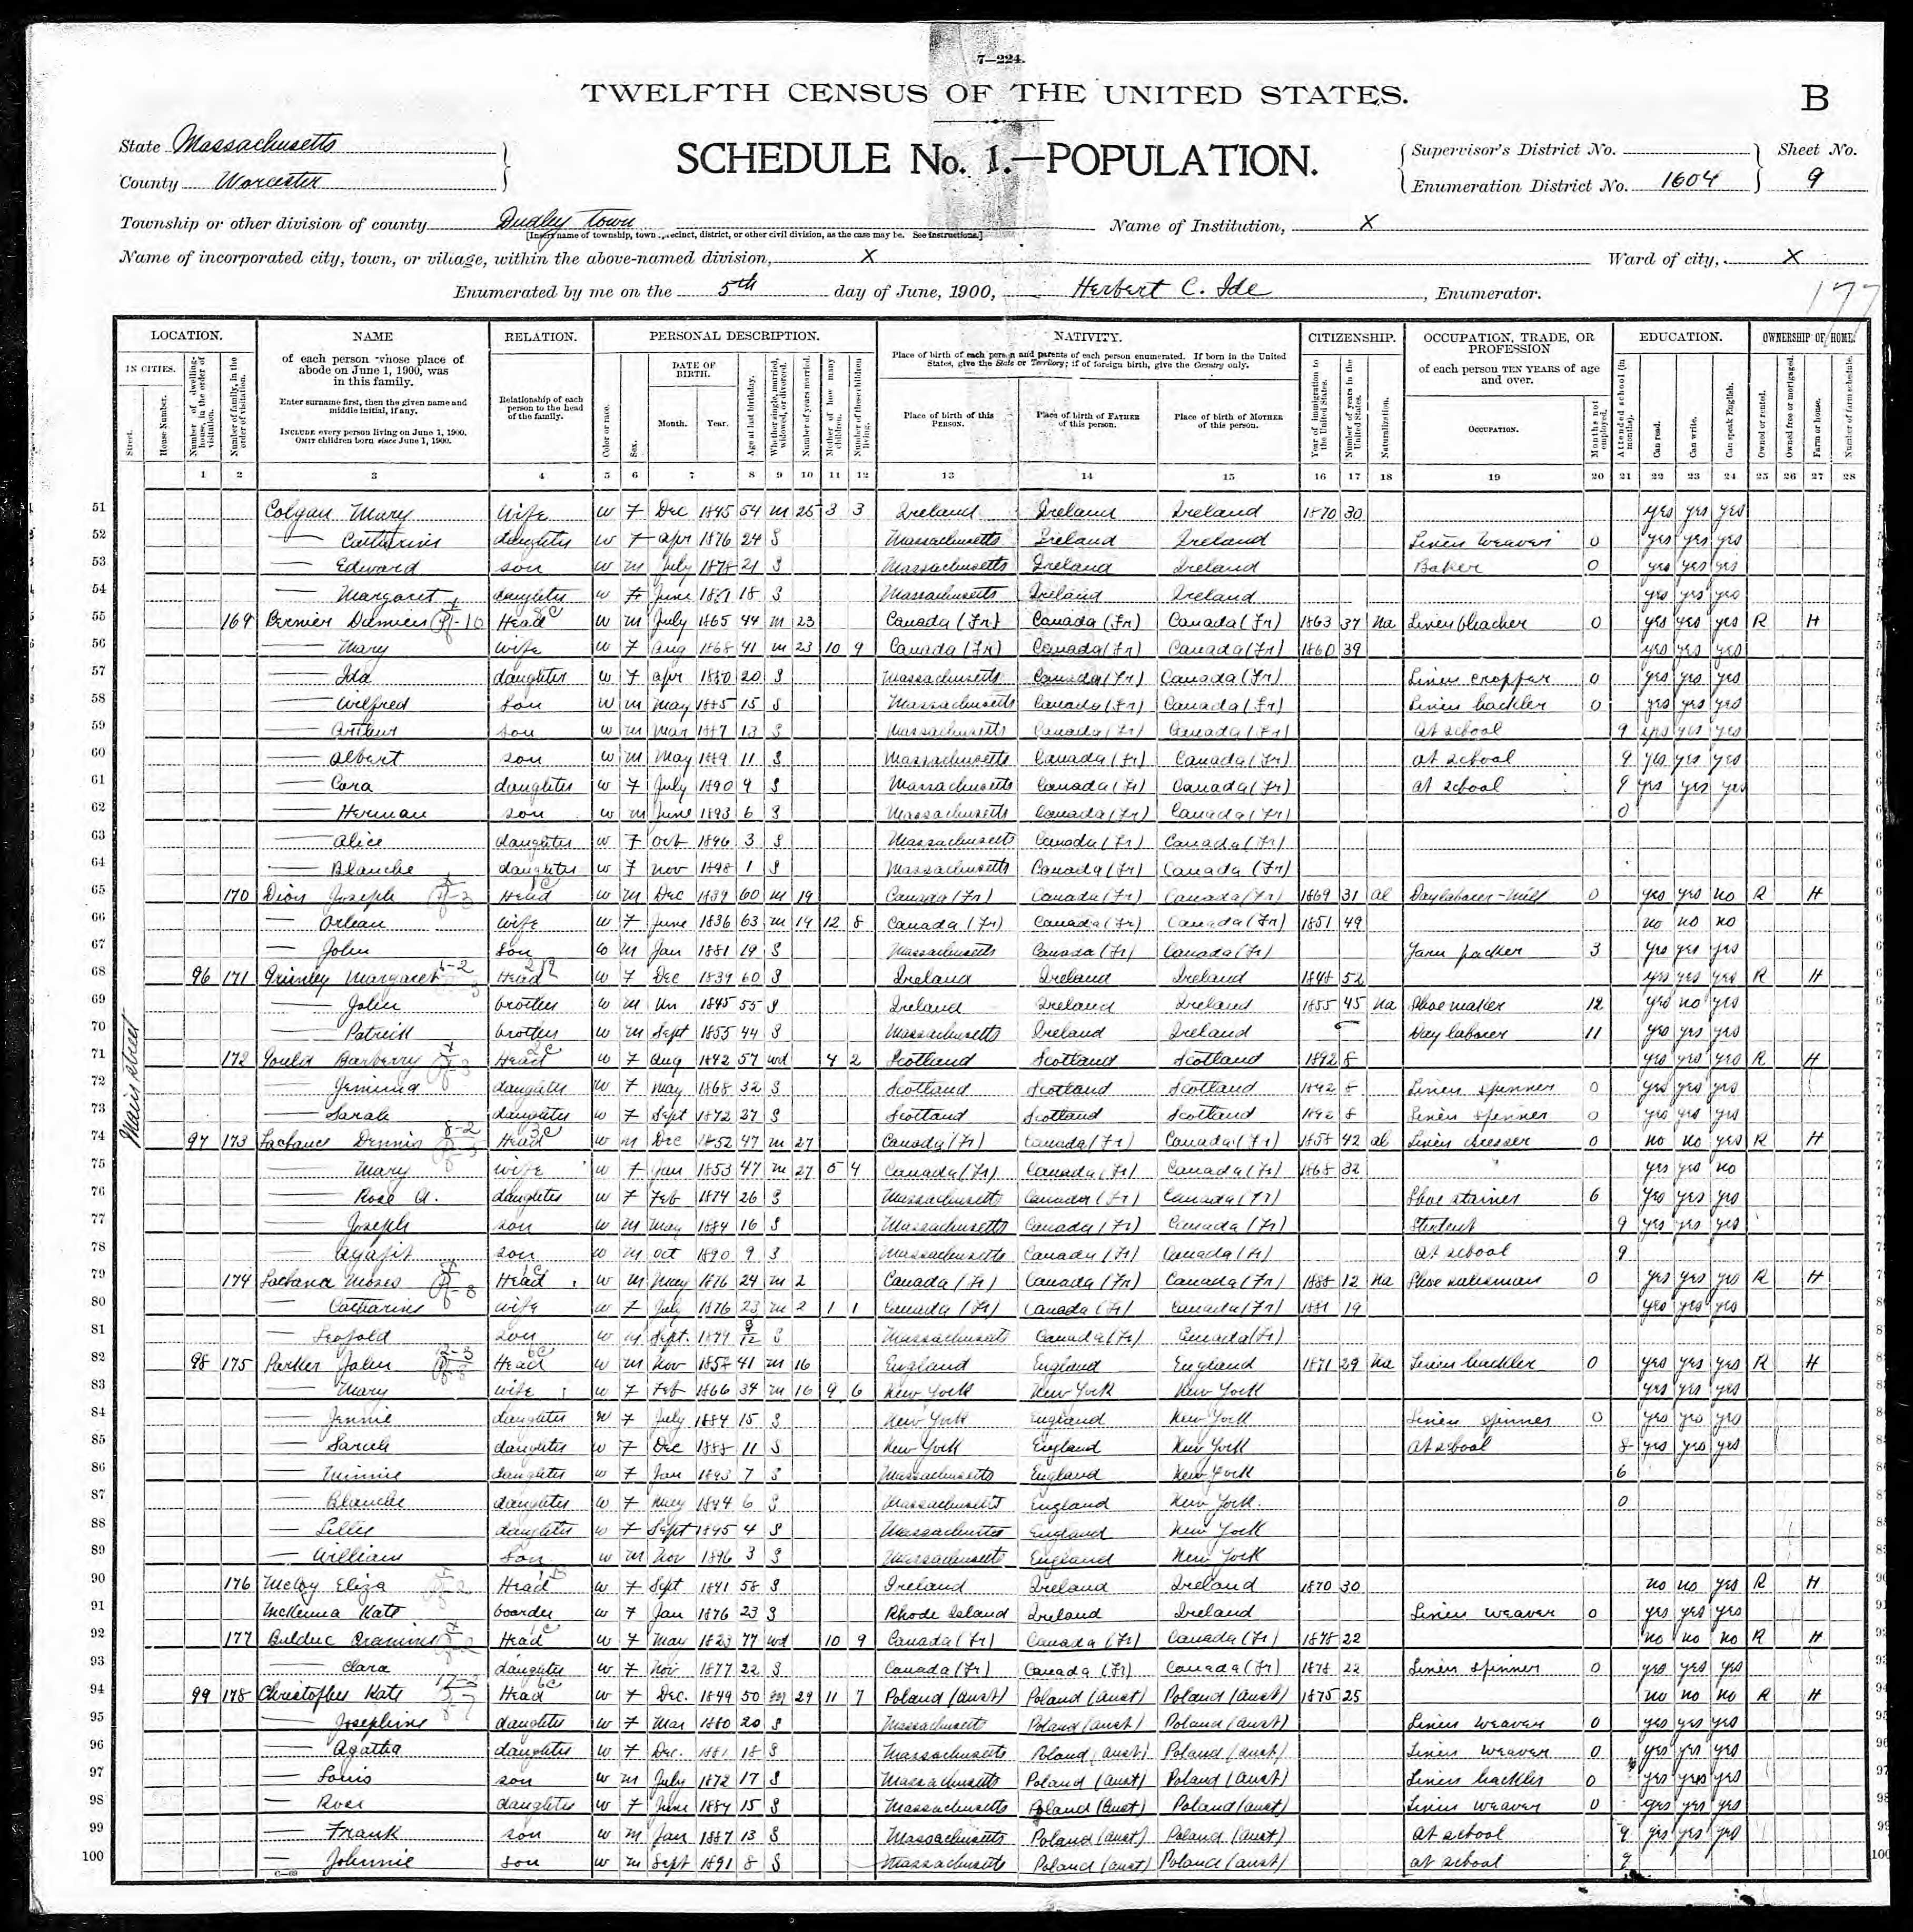 7—224.
TWELFTH CENSUS OF THE UNITED STATES.
B
State Massachusetts
County Worcester
SCHEDULE No. 1.—POPULATION.
Supervisor's District No.
Enumeration District No. 1604
Sheet No.
9
Township or other division of county Dudley Town
[Insert name of township, town, precinct, district, or other civil division, as the case may be. See instructions.]
Name of Institution, X
Name of incorporated city, town, or village, within the above-named division, X
Ward of city, X
Enumerated by me on the 5th day of June, 1900, Herbert C. Ide, Enumerator.
177
LOCATION. NAME RELATION. PERSONAL DESCRIPTION. NATIVITY. CITIZENSHIP. OCCUPATION, TRADE, OR PROFESSION EDUCATION. OWNERSHIP OF HOME.
IN CITIES.
Street.
House Number.
Number of dwelling-house, in the order of visitation.
Number of family, in the order of visitation.
of each person whose place of abode on June 1, 1900, was in this family.
Enter surname first, then the given name and middle initial, if any.
INCLUDE every person living on June 1, 1900.
OMIT children born since June 1, 1900.
Relationship of each person to the head of the family.
Color or race.
Sex.
DATE OF BIRTH.
Month. Year.
Age at last birthday.
Whether single, married, widowed, or divorced.
Number of years married.
Mother of how many children.
Number of these children living.
Place of birth of each person and parents of each person enumerated. If born in the United States, give the State or Territory; if of foreign birth, give the Country only.
Place of birth of this PERSON.
Place of birth of FATHER of this person.
Place of birth of MOTHER of this person.
Year of immigration to the United States.
Number of years in the United States.
Naturalization.
of each person TEN YEARS of age and over.
OCCUPATION.
Months not employed.
Attended school (in months).
Can read.
Can write.
Can speak English.
Owned or rented.
Owned free or mortgaged.
Farm or house.
Number of farm schedule.
1 2 3 4 5 6 7 8 9 10 11 12 13 14 15 16 17 18 19 20 21 22 23 24 25 26 27 28
Main Street
51 Colgan Mary Wife W F Dec 1845 54 M 25 3 3 Ireland Ireland Ireland 1870 30 yes yes yes
52 — Catharine daughter W F Apr 1876 24 S Massachusetts Ireland Ireland Linen Weaver 0 yes yes yes
53 — Edward son W M July 1878 21 S Massachusetts Ireland Ireland Baker 0 yes yes yes
54 — Margaret daughter W F June 18 S Massachusetts Ireland Ireland yes yes yes
55 169 Bernier Damien Head W M July 1865 44 M 23 Canada (Fr) Canada (Fr) Canada (Fr) 1863 37 Na Linen bleacher 0 yes yes yes R H
56 — Mary wife W F Aug 1868 41 M 23 10 9 Canada (Fr) Canada (Fr) Canada (Fr) 1860 39 yes yes yes
57 — Ida daughter W F Apr 1880 20 S Massachusetts Canada (Fr) Canada (Fr) Linen 0 yes yes yes
58 — Wilfred Son W M May 1885 15 S Massachusetts Canada (Fr) Canada (Fr) Linen hackler 0 yes yes yes
59 — Arthur son W M Mar 1887 13 S Massachusetts Canada (Fr) Canada (Fr) At school 9 yes yes yes
60 — Albert son W M May 1889 11 S Massachusetts Canada (Fr) Canada (Fr) at school 9 yes yes yes
61 — Cora daughter W F July 1890 9 S Massachusetts Canada (Fr) Canada (Fr) at school 9 yes yes yes
62 — Herman son W M June 1893 6 S Massachusetts Canada (Fr) Canada (Fr) 0
63 — Alice daughter W F Oct 1896 3 S Massachusetts Canada (Fr) Canada (Fr)
64 — Blanche daughter W F Nov 1898 1 S Massachusetts Canada (Fr) Canada (Fr)
65 170 Dion Joseph Head W M Dec 1839 60 M 19 Canada (Fr) Canada (Fr) Canada (Fr) 1869 31 al Day laborer - Mill 0 yes yes no R H
66 — Orlean wife W F June 1836 63 M 19 12 8 Canada (Fr) Canada (Fr) Canada (Fr) 1851 49 no no no
67 — John Son W M Jan 1881 19 S Massachusetts Canada (Fr) Canada (Fr) Yarn packer 3 yes yes yes
68 96 171 Margaret Head W F Dec 1839 60 S Ireland Ireland Ireland 1848 52 yes yes yes R H
69 — John brother W M Un 1845 55 S Ireland Ireland Ireland 1855 45 Na Shoe maker 12 yes no yes
70 — Patrick brother W M Sept 1855 44 S Massachusetts Ireland Ireland Day laborer 11 yes yes yes
71 172 Gould Barberry Head W F Aug 1842 57 wd 4 2 Scotland Scotland Scotland 1892 8 yes yes yes R H
72 — Jemima daughter W F May 1868 32 S Scotland Scotland Scotland 1892 8 Linen spinner 0 yes yes yes
73 — Sarah daughter W F Sept 1872 27 S Scotland Scotland Scotland 1892 8 Linen spinner 0 yes yes yes
74 97 173 Lachance Dennis Head W M Dec 1852 47 M 27 Canada (Fr) Canada (Fr) Canada (Fr) 1858 42 al Linen dresser 0 no no yes R H
75 — Mary wife W F Jan 1853 47 M 27 5 4 Canada (Fr) Canada (Fr) Canada (Fr) 1868 32 yes yes no
76 — Rose A. daughter W F Feb 1874 26 S Massachusetts Canada (Fr) Canada (Fr) Shoe stainer 6 yes yes yes
77 — Joseph son W M May 1884 16 S Massachusetts Canada (Fr) Canada (Fr) Student 9 yes yes yes
78 — Agapit son W M Oct 1890 9 S Massachusetts Canada (Fr) Canada (Fr) At school 9
79 174 Moses Head W M May 1876 24 M 2 Canada (Fr) Canada (Fr) Canada (Fr) 1888 12 Na Shoe salesman 0 yes yes yes R H
80 — Catharine wife W F July 1876 23 M 2 1 1 Canada (Fr) Canada (Fr) Canada (Fr) 1881 19 yes yes yes
81 — Leopold son W M Sept. 1899 9/12 S Massachusetts Canada (Fr) Canada (Fr)
82 98 175 Parker John Head W M Nov 1858 41 M 16 England England England 1871 29 Na Linen hackler 0 yes yes yes R H
83 — Mary wife W F Feb 1866 34 M 16 9 6 New York New York New York yes yes yes
84 — Jennie daughter W F July 1884 15 S New York England New York Linen spinner 0 yes yes yes
85 — Sarah daughter W F Dec 1888 11 S New York England New York At school 8 yes yes yes
86 — Minnie daughter W F Jan 1893 7 S Massachusetts England New York 6
87 — Blanche daughter W F May 1894 6 S Massachusetts England New York. 0
88 — Lilly daughter W F Sept 1895 4 S Massachusetts England New York
89 — William Son W M Nov 1896 3 S Massachusetts England New York
90 176 McCoy Eliza Head W F Sept 1841 58 S Ireland Ireland Ireland 1870 30 no no yes R H
91 McKenna Kate boarder W F Jan 1876 23 S Rhode Island Ireland Ireland Linen weaver 0 yes yes yes
92 177 Bulduc Head W F May 1823 77 wd 10 9 Canada (Fr) Canada (Fr) Canada (Fr) 1878 22 no no no R H
93 — Clara daughter W F Nov 1877 22 S Canada (Fr) Canada (Fr) Canada (Fr) 1878 22 Linen spinner 0 yes yes yes
94 99 178 Christopher Kate Head W F Dec. 1849 50 29 11 7 Poland (Aust) Poland (Aust) Poland (Aust) 1875 25 no no no R H
95 — Josephine daughter W F Mar 1880 20 S Massachusetts Poland (Aust) Poland (Aust) Linen weaver 0 yes yes yes
96 — Agatha daughter W F Dec. 1881 18 S Massachusetts Poland (Aust) Poland (Aust) Linen weaver 0 yes yes yes
97 — Louis son W M July 1872 17 S Massachusetts Poland (Aust) Poland (Aust) Linen hackler 0 yes yes yes
98 — Rose daughter W F June 1884 15 S Massachusetts Poland (Aust) Poland (Aust) Linen weaver 0 yes yes yes
99 — Frank son W M Jan 1887 13 S Massachusetts Poland (Aust) Poland (Aust) at school 9 yes yes yes
100 — Johnnie son W M Sept 1891 8 S Massachusetts Poland (Aust) Poland (Aust) at school 9